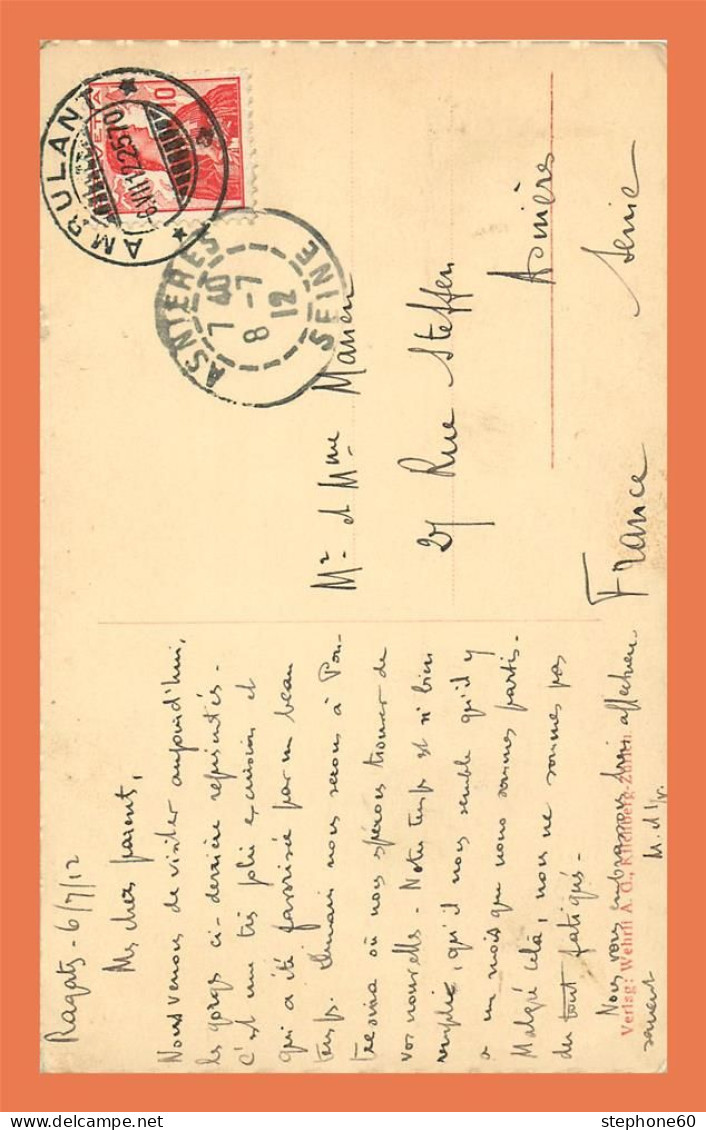 Ragatz - 6/7/12
Mes chers parents,
Nous venons de visiter aujourd'hui,
les gorges ci-derrière représentés -
C'est une très jolie excursion et
qui a été favorisée par un beau
temps. Demain nous serons à Pon-
tresina où nous espérons trouver de
vos nouvelles - Notre temps est si bien
rempli, qu'il nous semble qu'il y
a un mois que nous sommes partis -
Malgré celà, nous ne sommes pas
du tout fatigués -
Nous vous embrassons bien affectueu-
sement
Verlag: Wehrli A. G., Kilchberg-Zürich
Mr et Mme
27 Rue Steffen
Asnières
Seine
France
AMBULANT
6.VII.12.2570
HELVETIA
10
ASNIERES
7 40
8 - 7
12
SEINE
stephone60